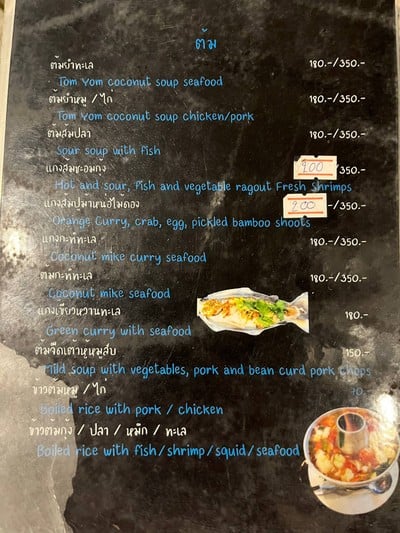 ต้ม
ต้มยำทะเล 180.-/350.-
Tom Yom coconut soup seafood
ต้มยำหมู / ไก่ 180.-/350.-
Tom Yom coconut soup chicken/pork
ต้มส้มปลา 180.-/350.-
Sour soup with fish
แกงส้มชะอมกุ้ง 200 350.-
Hot and sour, fish and vegetable ragout Fresh Shrimps
แกงส้มปูม้าหน่อไม้ดอง 200 -/350.-
Orange Curry, crab, egg, pickled bamboo shoots
แกงกะทิทะเล 180.-/350.-
Coconut mike curry seafood
ต้มกะทิทะเล 180.-/350.-
Coconut mike seafood
แกงเขียวหวานทะเล 180.-
Green curry with seafood
ต้มจืดเต้าหู้หมูสับ 150.-
Mild soup with vegetables, pork and bean curd pork chops
ข้าวต้มหมู / ไก่ 70.-
Boiled rice with pork / chicken
ข้าวต้มกุ้ง / ปลา / หมึก / ทะเล
Boiled rice with fish/shrimp/squid/seafood